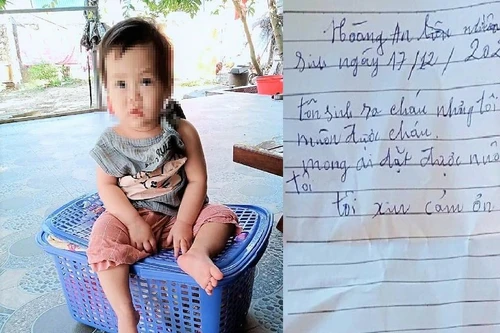 Hoàng An
sinh ngày 17/12/202
tôn sinh ra cháu nhưng tôi
muôn được cháu.
mong ai đặt được nuô
tôi
tôi xin cảm ơn